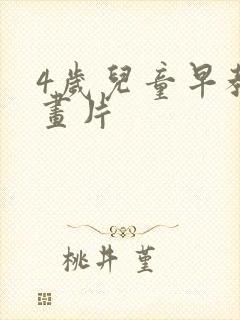 4歲兒童早教
畫片
桃井菫